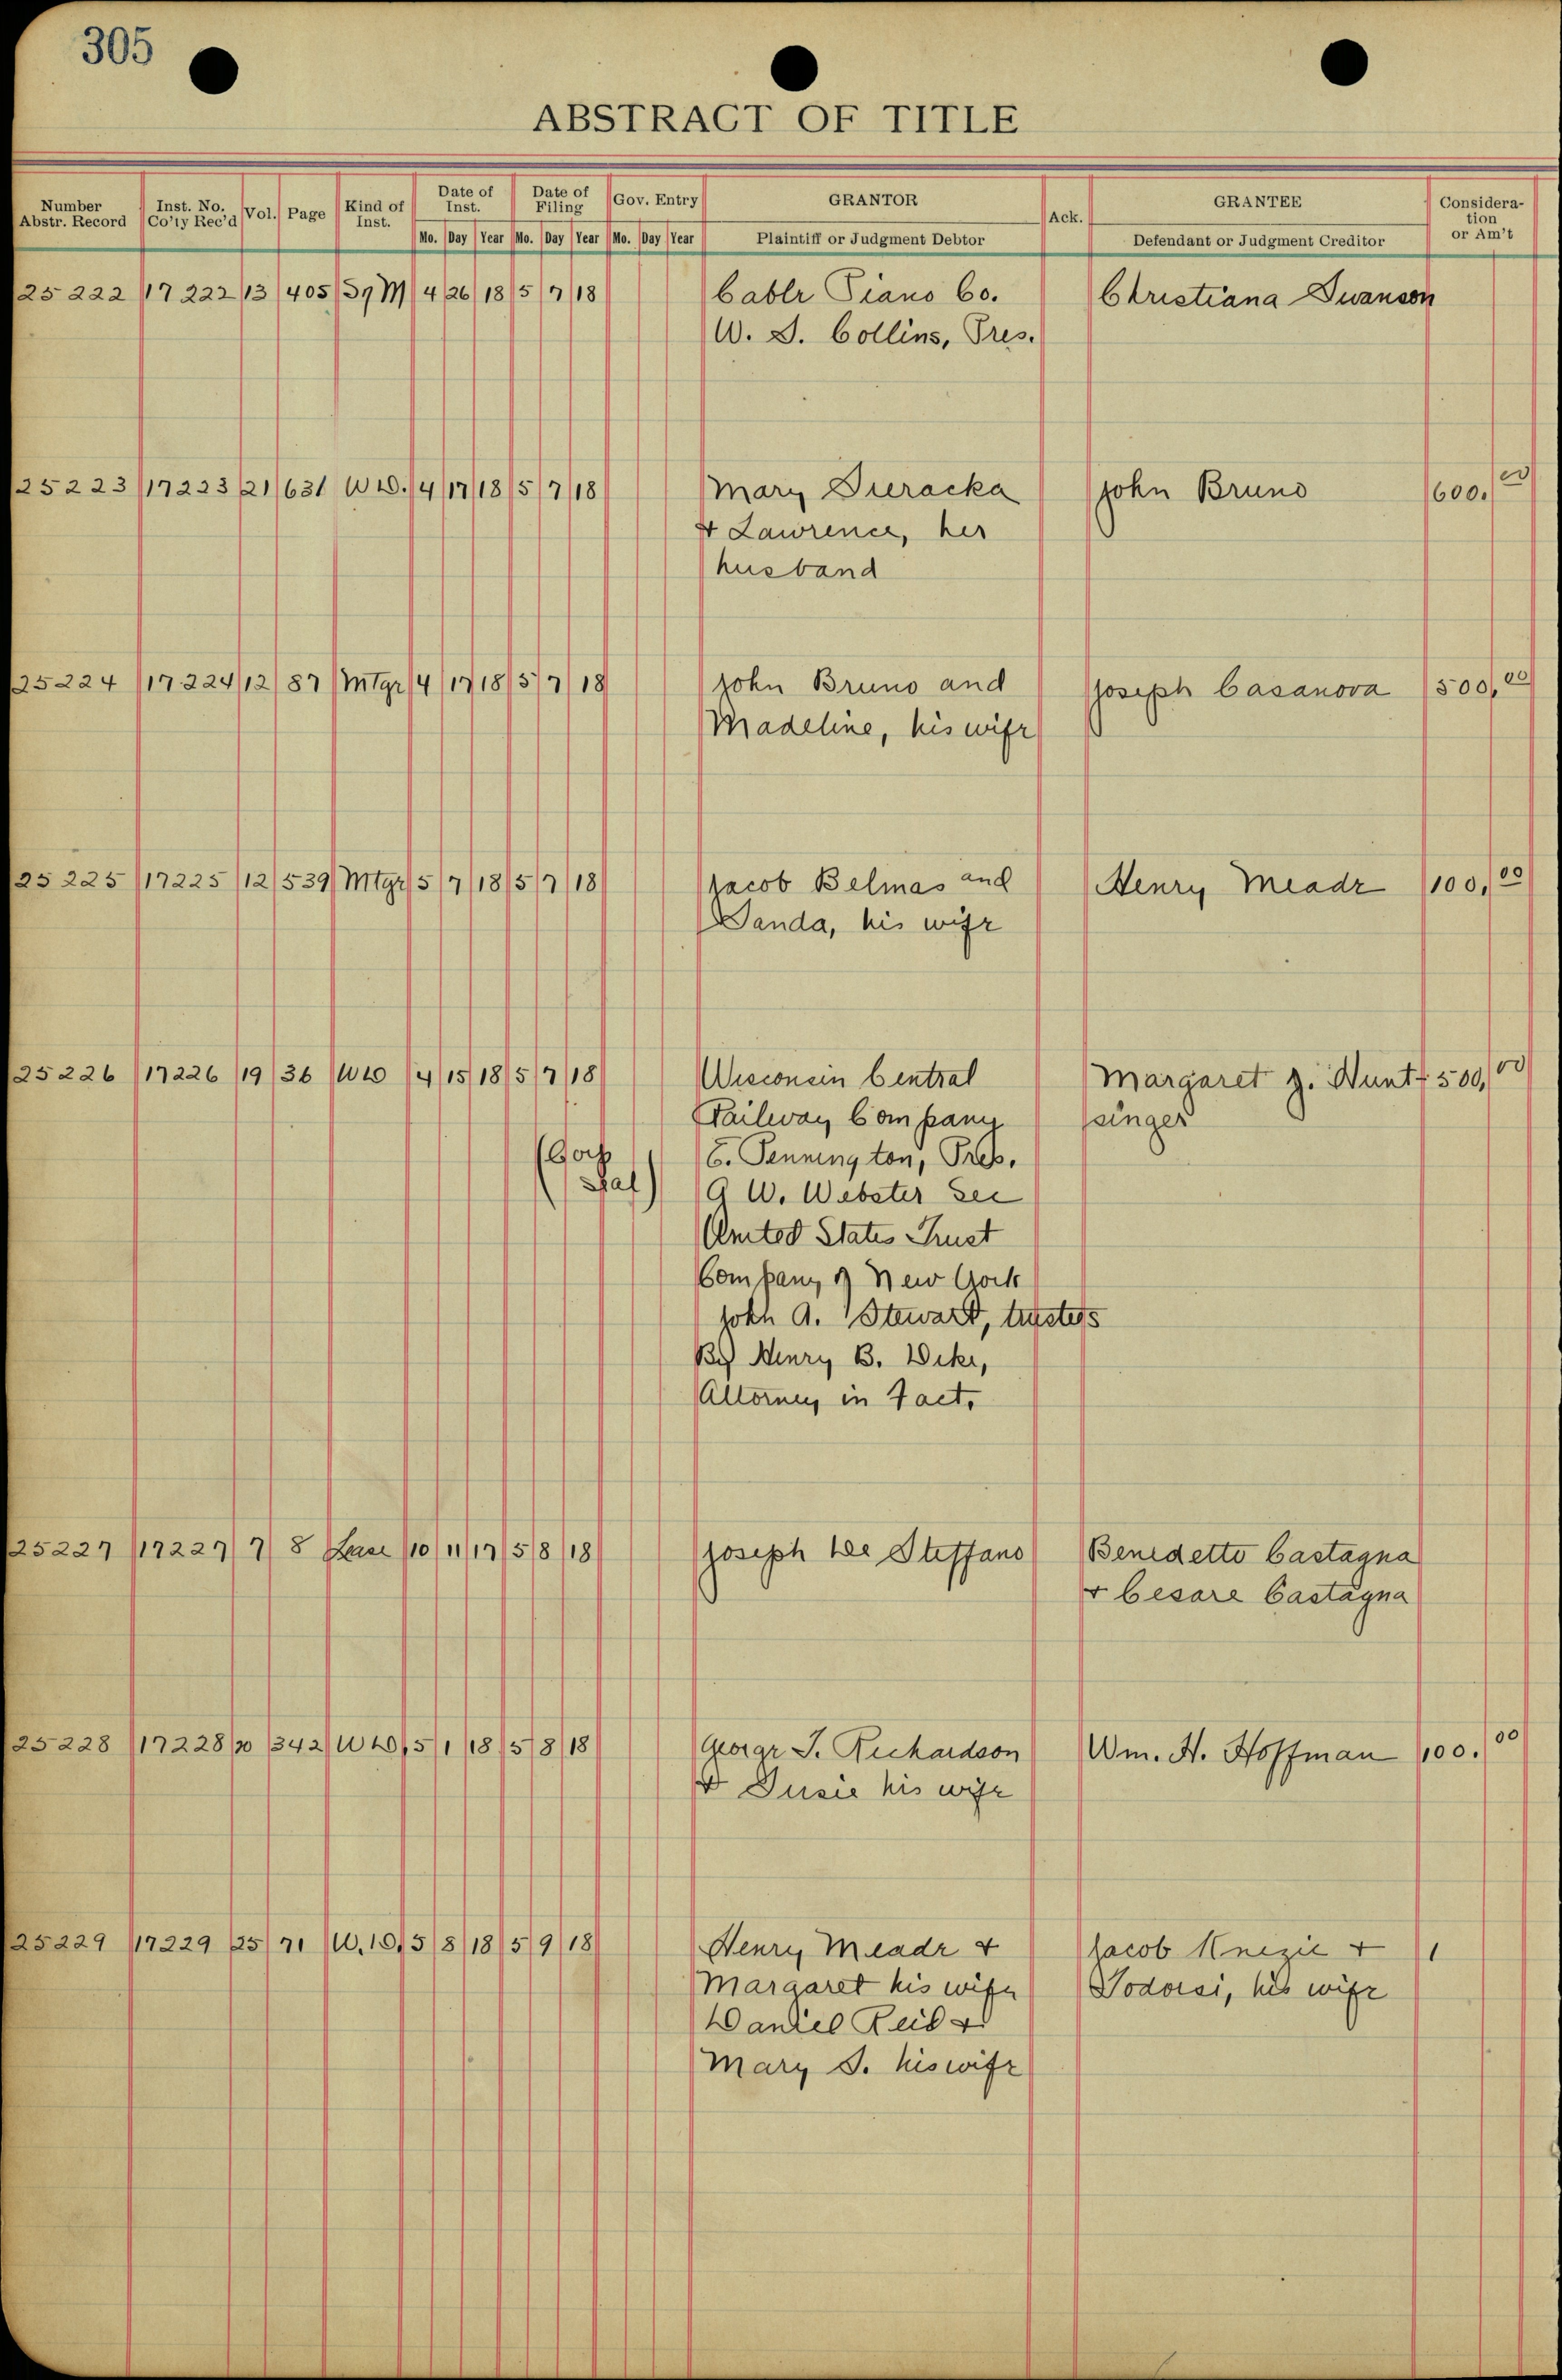 305
ABSTRACT OF TITLE
Number Abstr. Record Inst. No. Co'ty Rec'd Vol. Page Kind of Inst. Date of Inst. Date of Filing Gov. Entry GRANTOR Ack. GRANTEE Considera-tion or Am't
Mo. Day Year Mo. Day Year Mo. Day Year Plaintiff or Judgment Debtor Defendant or Judgment Creditor
25222 17222 13 405 M 4 26 18 5 7 18 Cable Piano Co. Christiana Swanson
W. S. Collins, Pres.
25223 17223 21 631 W.D. 4 17 18 5 7 18 Mary Sieracka John Bruno 600.00
& Lawrence, her
husband
25224 17224 12 87 Mtge 4 17 18 5 7 18 John Bruno and Joseph Casanova 500.00
Madeline, his wife
25225 17225 12 539 Mtge 5 7 18 5 7 18 Jacob Belmas and Henry Meade 100.00
Wanda, his wife
25226 17226 19 36 WD 4 15 18 5 7 18 Wisconsin Central Margaret J. Hunt- 500.00
Railway Company singer
(Corp E. Pennington, Pres.
Sal) G W. Webster Sec
United States Trust
Company of New York
John A. Stewart, trustees
By Henry B. Dike,
Attorney in Fact.
25227 17227 7 8 Lease 10 11 17 5 8 18 Joseph De Steffano Benedetto Castagna
& Cesare Castagna
25228 17228 20 342 WD 5 1 18 5 8 18 George S. Richardson Wm. H. Hoffman 100.00
& Susie his wife
25229 17229 25 71 W.D. 5 8 18 5 9 18 Henry Meade & Jacob Knezic & 1
Margaret his wife Todorsi, his wife
Daniel Reid &
Mary S. his wife